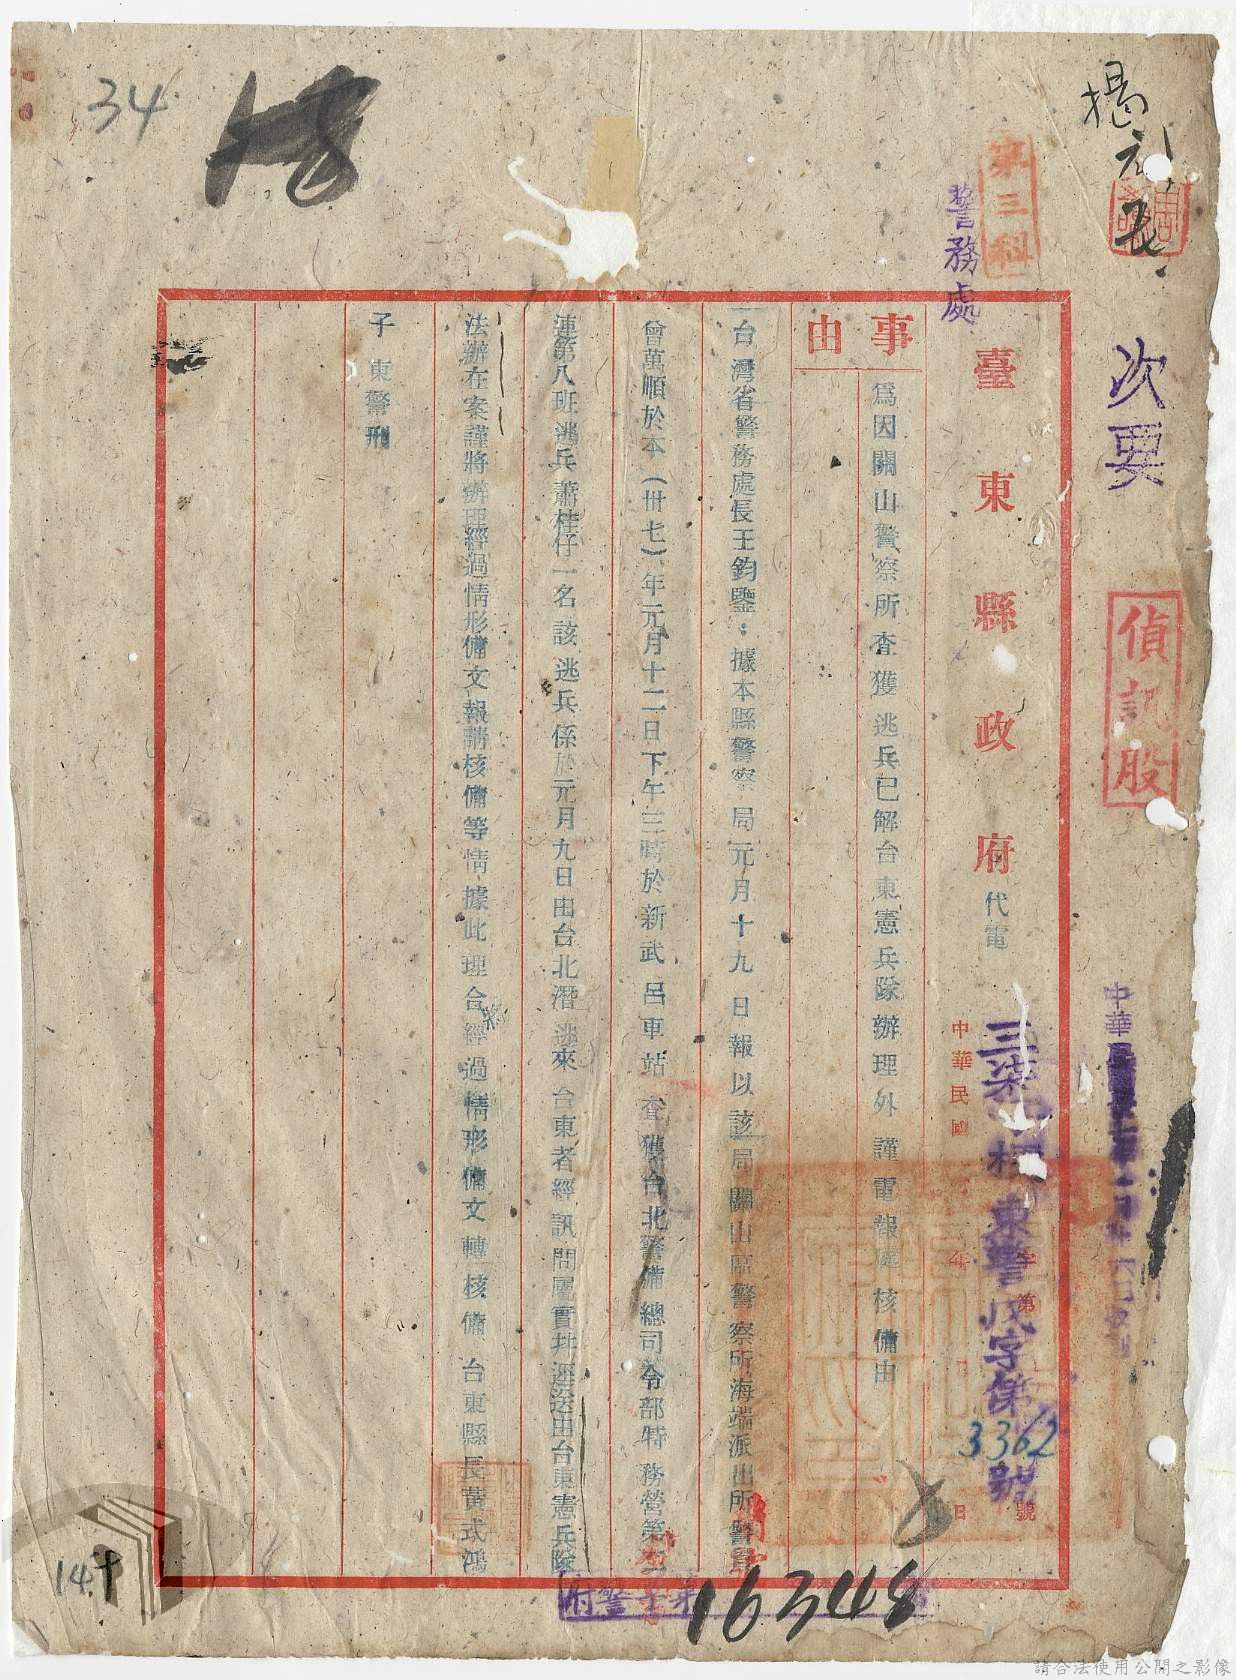 34
次要
偵訊股
第三科
警務處
臺東縣政府代電
中華民國 年 日
東警戌字第3362號
字第 號
事由
爲因關山警察所查獲逃兵已解台東憲兵隊辦理外謹電報處核備由
台灣省警務處長王鈞鑒：據本縣警察局元月十九日報以該局關山區警察所海端派出所警員
曾萬順於本（卅七）年元月十二日下午三時於新武呂車站查獲台北警備總司令部特務營第
連第八班逃兵蕭桂仔一名該逃兵係於元月九日由台北潛逃來台東者經訊問屬實并逕送由台東憲兵隊
法辦在案謹將辦理經過情形備文報請核備等情據此理合經過情形備文轉核備 台東縣長黃式鴻
子 東警刑
16348
14
請合法使用公開之影像